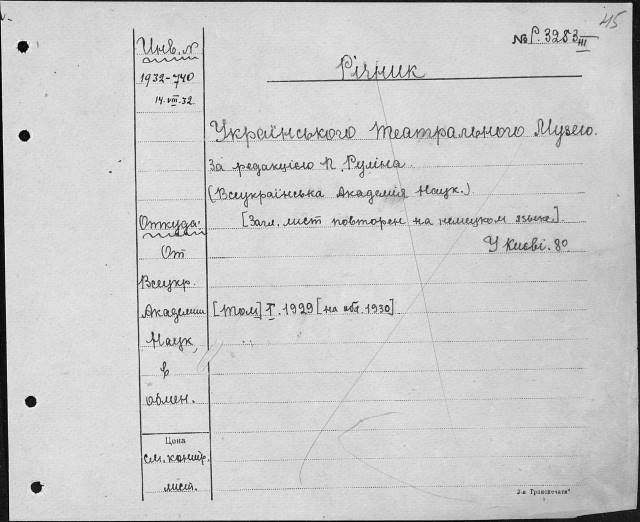 45
№ Р. 3283 III
Инв. №
1932-740
14.VIII.32
Річник
Українського Театрального Музею.
За редакцією П. Руліна.
(Всеукраїнська Академія Наук.)
[Загл. лист повторен на немецком языке].
У Києві. 8°
Откуда:
От
Всеукр.
Академии
Наук,
в
обмен.
[Том] I. 1929 [на обл. 1930].
Цена
см. контр.
лист.
2-я Транспечати"